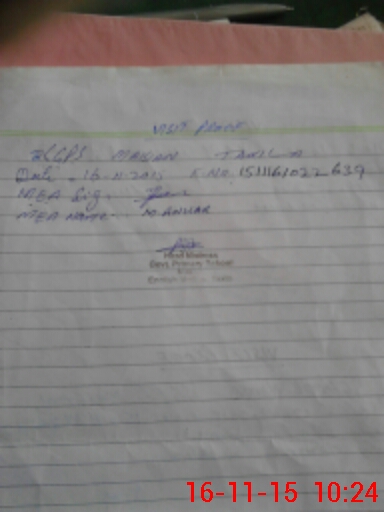 VISIT PROOF
Date : 16-11-2015 S.NO. 1511161022639
MEA Sig.
MEA NAME - M ANWAR
Head Mistress
Govt. Primary School
16-11-15 10:24